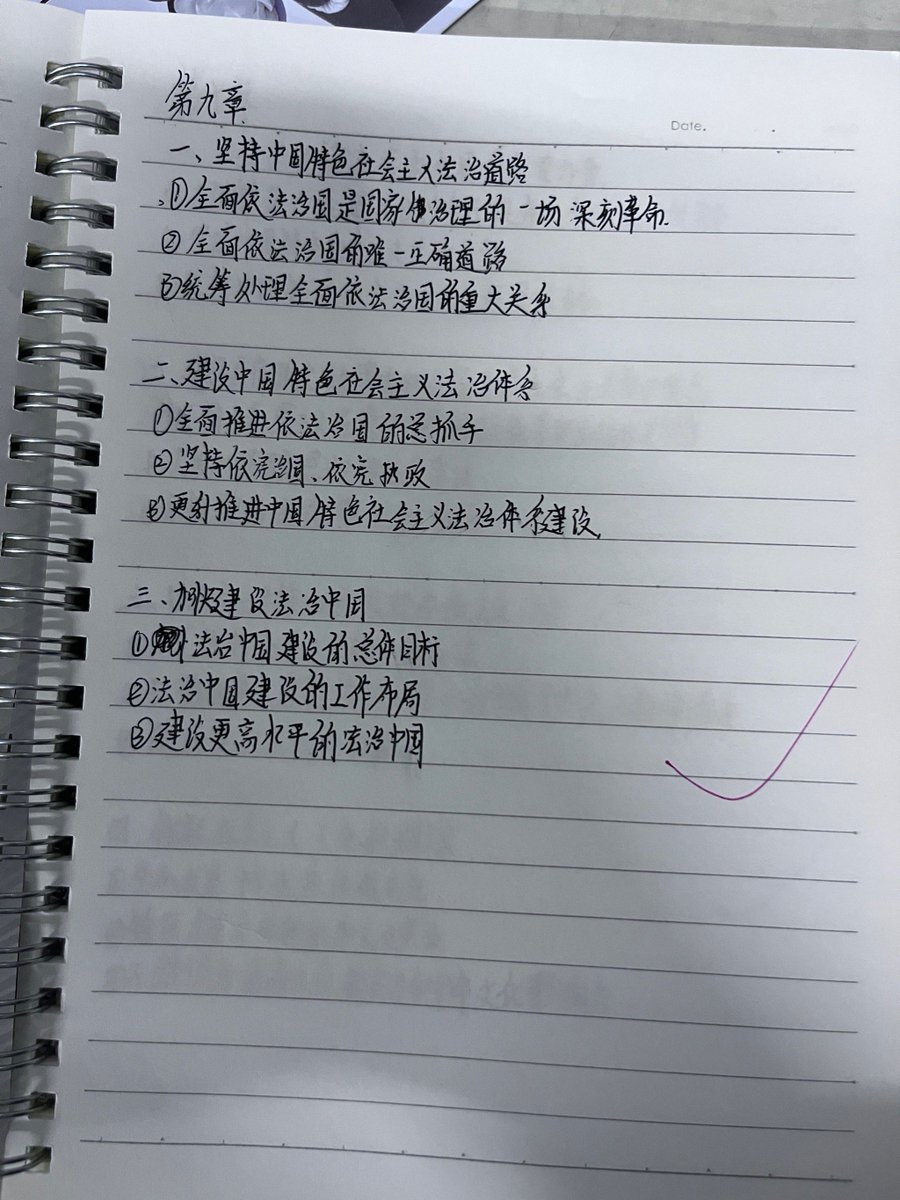 第九章
Date.
一、坚持中国特色社会主义法治道路
①全面依法治国是国家治理的一场深刻革命.
②全面依法治国的唯一正确道路
③统筹处理全面依法治国的重大关系
二、建设中国特色社会主义法治体系
①全面推进依法治国的总抓手
②坚持依宪治国、依宪执政
③更好推进中国特色社会主义法治体系建设.
三、加快建设法治中国
①法治中国建设的总体目标
②法治中国建设的工作布局
③建设更高水平的法治中国